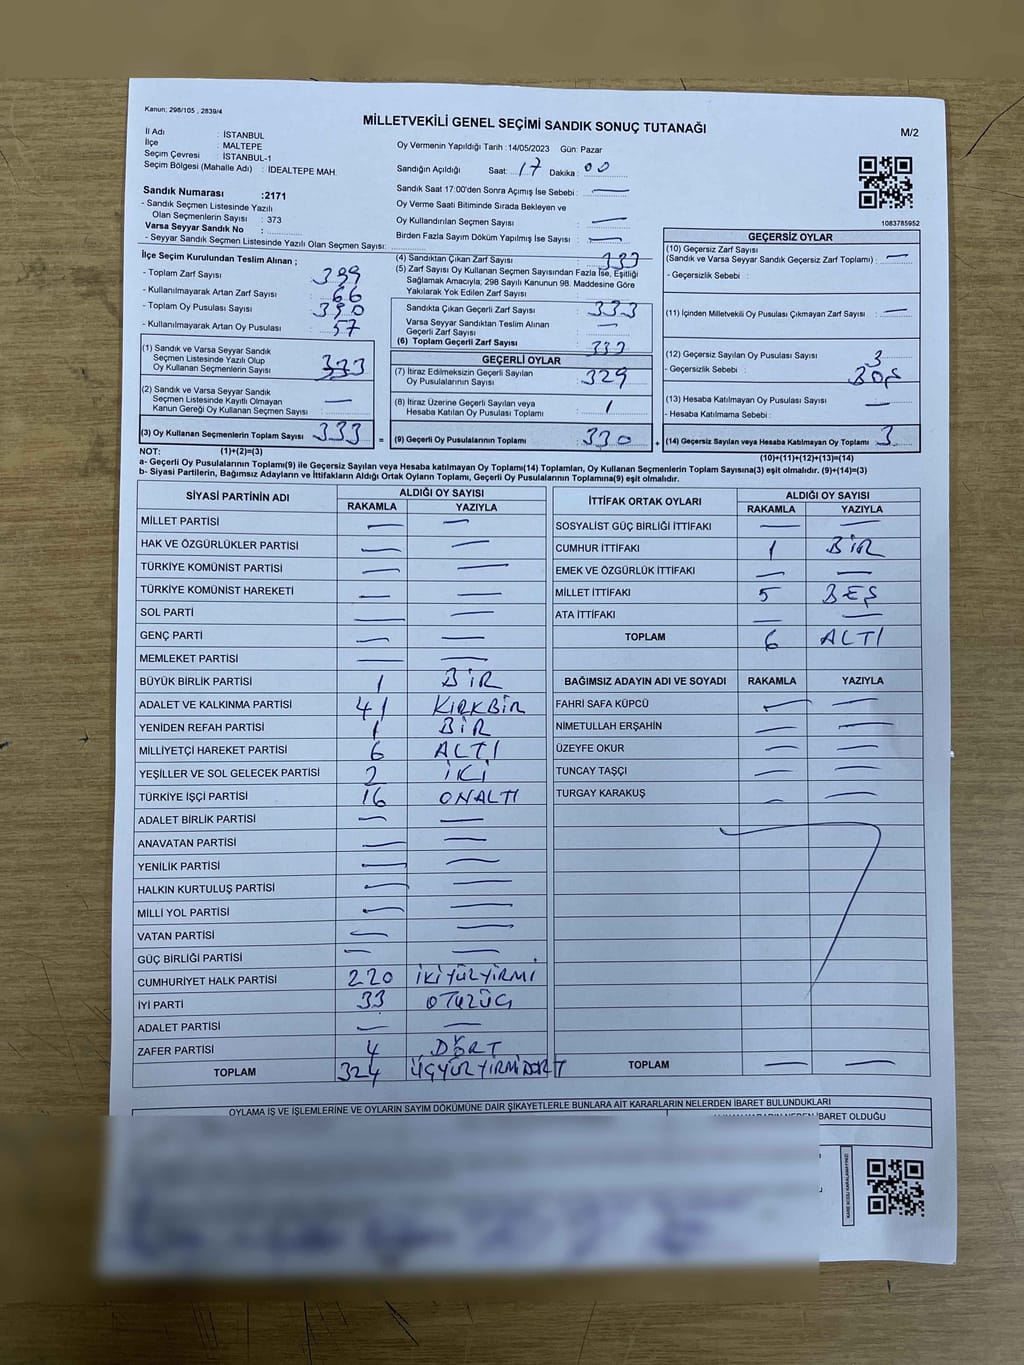 Kanun: 298/105 , 2839/4
MİLLETVEKİLİ GENEL SEÇİMİ SANDIK SONUÇ TUTANAĞI
M/2
İl Adı : İSTANBUL
İlçe : MALTEPE
Seçim Çevresi : İSTANBUL-1
Seçim Bölgesi (Mahalle Adı) : İDEALTEPE MAH.
Sandık Numarası :2171
- Sandık Seçmen Listesinde Yazılı
Olan Seçmenlerin Sayısı : 373
Varsa Seyyar Sandık No :
- Seyyar Sandık Seçmen Listesinde Yazılı Olan Seçmen Sayısı:
Oy Vermenin Yapıldığı Tarih :14/05/2023 Gün: Pazar
Sandığın Açıldığı Saat: 17 Dakika : 00
Sandık Saat 17:00'den Sonra Açımış İse Sebebi : —
Oy Verme Saati Bitiminde Sırada Bekleyen ve
Oy Kullandırılan Seçmen Sayısı : —
Birden Fazla Sayım Döküm Yapılmış İse Sayısı : —
1083785952
İlçe Seçim Kurulundan Teslim Alınan ;
- Toplam Zarf Sayısı : 399
- Kullanılmayarak Artan Zarf Sayısı : 66
- Toplam Oy Pusulası Sayısı : 390
- Kullanılmayarak Artan Oy Pusulası : 57
(1) Sandık ve Varsa Seyyar Sandık
Seçmen Listesinde Yazılı Olup
Oy Kullanan Seçmenlerin Sayısı : 333
(2) Sandık ve Varsa Seyyar Sandık
Seçmen Listesinde Kayıtlı Olmayan
Kanun Gereği Oy Kullanan Seçmen Sayısı : —
(3) Oy Kullanan Seçmenlerin Toplam Sayısı : 333
(4) Sandıktan Çıkan Zarf Sayısı : 333
(5) Zarf Sayısı Oy Kullanan Seçmen Sayısından Fazla İse, Eşitliği
Sağlamak Amacıyla; 298 Sayılı Kanunun 98. Maddesine Göre
Yakılarak Yok Edilen Zarf Sayısı :
Sandıkta Çıkan Geçerli Zarf Sayısı : 333
Varsa Seyyar Sandıktan Teslim Alınan
Geçerli Zarf Sayısı : —
(6) Toplam Geçerli Zarf Sayısı : 333
GEÇERLİ OYLAR
(7) İtiraz Edilmeksizin Geçerli Sayılan
Oy Pusulalarının Sayısı : 329
(8) İtiraz Üzerine Geçerli Sayılan veya
Hesaba Katılan Oy Pusulası Toplamı : 1
= (9) Geçerli Oy Pusulalarının Toplamı : 330 +
GEÇERSİZ OYLAR
(10) Geçersiz Zarf Sayısı
(Sandık ve Varsa Seyyar Sandık Geçersiz Zarf Toplamı) : —
- Geçersizlik Sebebi :
(11) İçinden Milletvekili Oy Pusulası Çıkmayan Zarf Sayısı : —
(12) Geçersiz Sayılan Oy Pusulası Sayısı : 3
- Geçersizlik Sebebi : BOŞ
(13) Hesaba Katılmayan Oy Pusulası Sayısı : —
- Hesaba Katılmama Sebebi :
(14) Geçersiz Sayılan veya Hesaba Katılmayan Oy Toplamı : 3
NOT: (1)+(2)=(3)
(10)+(11)+(12)+(13)=(14)
a- Geçerli Oy Pusulalarının Toplamı(9) ile Geçersiz Sayılan veya Hesaba katılmayan Oy Toplamı(14) Toplamları, Oy Kullanan Seçmenlerin Toplam Sayısına(3) eşit olmalıdır. (9)+(14)=(3)
b- Siyasi Partilerin, Bağımsız Adayların ve İttifakların Aldığı Ortak Oyların Toplamı, Geçerli Oy Pusulalarının Toplamına(9) eşit olmalıdır.
SİYASİ PARTİNİN ADI ALDIĞI OY SAYISI
RAKAMLA YAZIYLA
MİLLET PARTİSİ — —
HAK VE ÖZGÜRLÜKLER PARTİSİ — —
TÜRKİYE KOMÜNİST PARTİSİ — —
TÜRKİYE KOMÜNİST HAREKETİ — —
SOL PARTİ — —
GENÇ PARTİ — —
MEMLEKET PARTİSİ — —
BÜYÜK BİRLİK PARTİSİ 1 BİR
ADALET VE KALKINMA PARTİSİ 41 KIRKBİR
YENİDEN REFAH PARTİSİ 1 BİR
MİLLİYETÇİ HAREKET PARTİSİ 6 ALTI
YEŞİLLER VE SOL GELECEK PARTİSİ 2 İKİ
TÜRKİYE İŞÇİ PARTİSİ 16 ONALTI
ADALET BİRLİK PARTİSİ — —
ANAVATAN PARTİSİ — —
YENİLİK PARTİSİ — —
HALKIN KURTULUŞ PARTİSİ — —
MİLLİ YOL PARTİSİ — —
VATAN PARTİSİ — —
GÜÇ BİRLİĞİ PARTİSİ — —
CUMHURİYET HALK PARTİSİ 220 İKİYÜZYİRMİ
İYİ PARTİ 33 OTUZÜÇ
ADALET PARTİSİ — —
ZAFER PARTİSİ 4 DÖRT
TOPLAM 324 ÜÇYÜZYİRMİDÖRT
İTTİFAK ORTAK OYLARI ALDIĞI OY SAYISI
RAKAMLA YAZIYLA
SOSYALİST GÜÇ BİRLİĞİ İTTİFAKI — —
CUMHUR İTTİFAKI 1 BİR
EMEK VE ÖZGÜRLÜK İTTİFAKI — —
MİLLET İTTİFAKI 5 BEŞ
ATA İTTİFAKI — —
TOPLAM 6 ALTI
BAĞIMSIZ ADAYIN ADI VE SOYADI RAKAMLA YAZIYLA
FAHRİ SAFA KÜPCÜ — —
NİMETULLAH ERŞAHİN — —
ÜZEYFE OKUR — —
TUNCAY TAŞÇI — —
TURGAY KARAKUŞ — —
TOPLAM — —
OYLAMA İŞ VE İŞLEMLERİNE VE OYLARIN SAYIM DÖKÜMÜNE DAİR ŞİKAYETLERLE BUNLARA AİT KARARLARIN NELERDEN İBARET BULUNDUKLARI
İBARET OLDUĞU